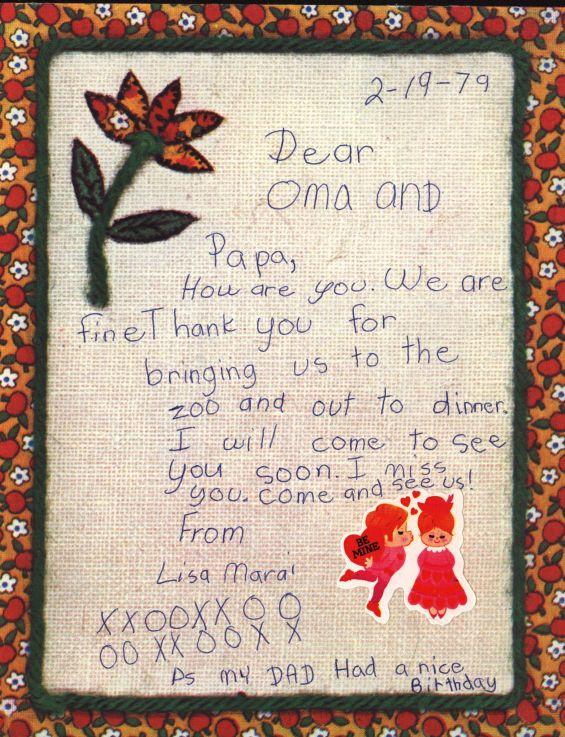 2-19-79
Dear
Oma AND
Papa,
How are you. We are
fine Thank you for
bringing us to the
zoo and out to dinner.
I will come to see
you soon. I miss
you. Come and see us!
From
Lisa Mara'
XXOOXXOO
OOXXOOXX
Ps my DAD Had a nice
Birthday
BE
MINE